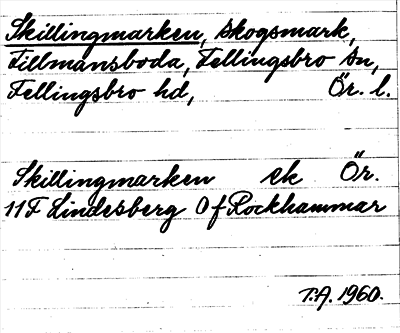 Skillingmarken, skogsmark,
Fillmansboda, Fellingsbro sn,
Fellingsbro hd, Ör. l.
Skillingmarken ek Ör.
11F Lindesberg 0f Rockhammar
T.A. 1960.